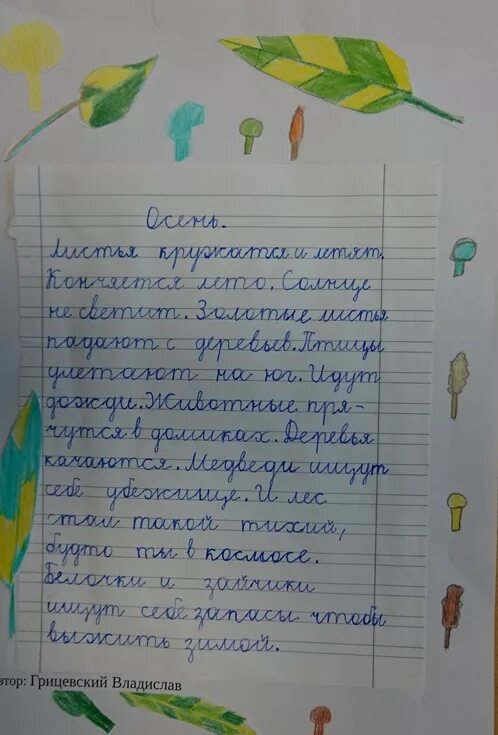 Осень.
Листья кружатся и летят.
Кончяется лето. Солнце
не светит. Золотые листья
падают с деревьев. Птицы
улетают на юг. Идут
дожди. Животные пря-
чутся в домиках. Деревья
качаются. Медведи ищут
себе убежище. И лес
стал такой тихий,
будто ты в космосе.
Белочки и зайчики
ищут себе запасы чтобы
выжить зимой.
втор: Грицевский Владислав